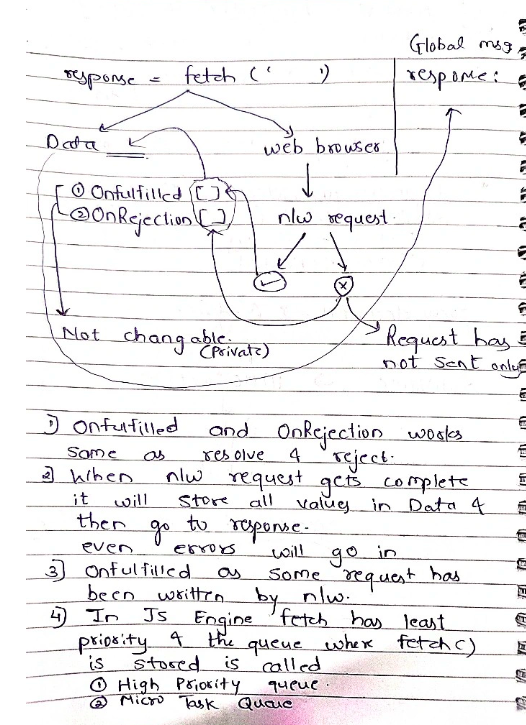 Global msg
response = fetch (' ')
response:
Data
web browser
① Onfulfilled [ ]
② OnRejection [ ]
n/w request.
Not changable.
(Private)
Request has
not sent only
1) Onfulfilled and OnRejection works
same as resolve & reject.
2) When n/w request gets complete
it will store all values in Data &
then go to response.
even errors will go in
3) Onfulfilled as some request has
been written by n/w.
4) In JS Engine fetch has least
priority & the queue where fetch()
is stored is called
① High Priority queue.
② Micro Task Queue